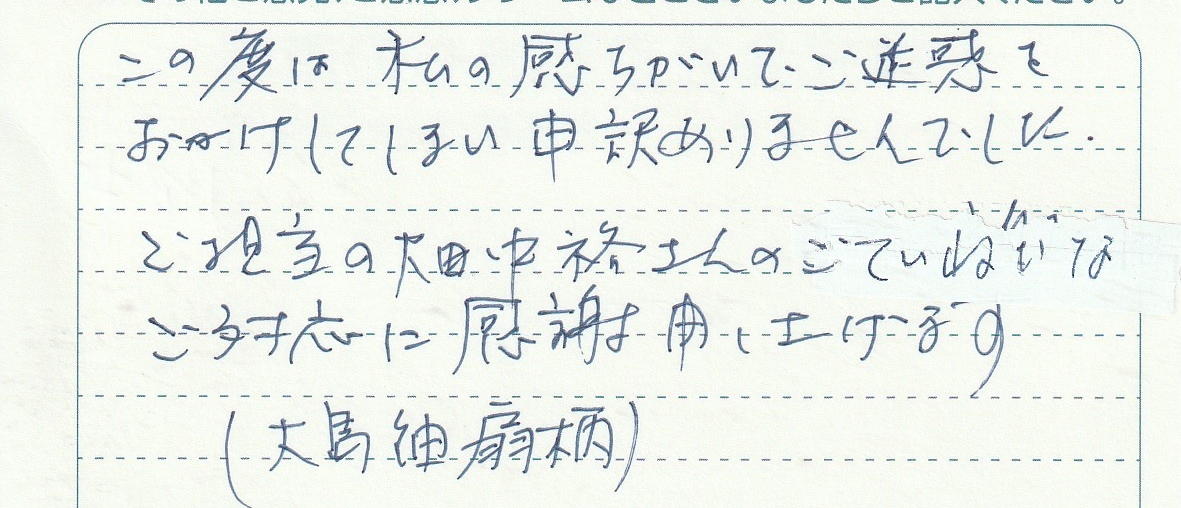 この度は私の感ちがいで、ご迷惑を
おかけしてしまい申訳ありませんでした.
ご担当の畑中裕さんのごていねいな
ご対応に感謝申し上げます
(大島紬扇柄)